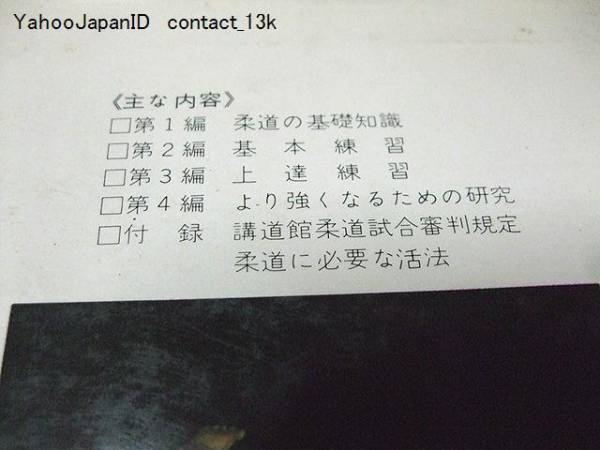 YahooJapanID contact_13k
《主な内容》
□第1編 柔道の基礎知識
□第2編 基本練習
□第3編 上達練習
□第4編 より強くなるための研究
□付録 講道館柔道試合審判規定
柔道に必要な活法